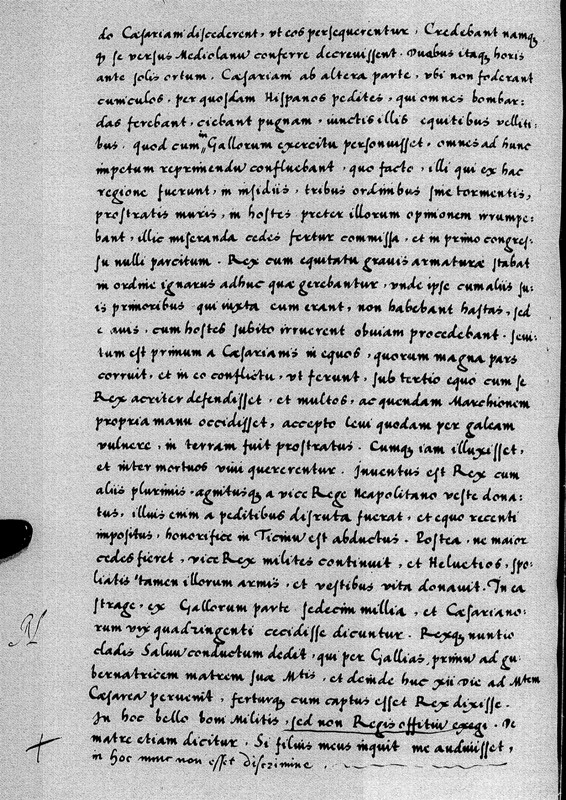 do Cæsariam discederent, vt eos persequerentur. Credebant namq̨
q̨ se versus Mediolanū conferre decrevissent. Duabus itaq̨ horis
ante solis ortum, Cæsariani ab altera parte, vbi non foderant
cuniculos, per quosdam Hispanos pedites, qui omnes bombar:
das ferebant, ciebant pugnam, iunctis illis equitibus velliti:
bus. quod cum in Gallorum exercitu personuisset, omnes ad hunc
impetum reprimendū confluebant, quo facto, illi qui ex hac
regione fuerunt, in insidiis, tribus ordinibus sine tormentis,
prostratis muris, in hostes preter illorum opinionem irrumpe:
bant, illic miseranda cedes fertur commissa, et in primo congres:
su nulli parcitum. Rex cum equitatu gravis armaturæ stabat
in ordine ignarus adhuc quæ gerebantur, vnde ipse cum aliis su:
is primoribus qui iuxta eum erant, non habebant hastas, sed
cum hostes subito irruerent obuiam procedebant. Seui:
tum est primum a Cæsarianis in equos, quorum magna pars
corruit, et in eo conflictu, vt ferunt, sub tertio equo cum se
Rex acriter defendisset, et multos, ac quendam Marchionem
propria manu occidisset, accepto leui quodam per galeam
vulnere, in terram fuit prostratus. Cumq̨ iam illuxisset,
et inter mortuos viui quererentur. Inuentus est Rex cum
aliis plurimis, agnitusq̨ a vice Rege Neapolitano veste dona:
tus, illius enim a peditibus disrupta fuerat, et equo recenti
impositus, honorifice in Ticinū est abductus. Postea, ne maior
cedes fieret, vice Rex milites continuit, et Heluetios, spo:
liatis tamen illorum armis, et vestibus vita donauit. In ea
strage, ex Gallorum parte sedecim millia, et Cæsariano:
rum vix quadringenti cecidisse dicuntur. Rexq̨ nuntio
cladis Saluū conductum dedit, qui per Gallias, primū ad gu:
bernatricem matrem suæ Mtis, et deinde huc xii die ad Mtem
Cæsarea peruenit, ferturq̨ cum captus esset Rex dixisse.
In hoc bello boni Militis, sed non Regis offitiū exegi. De
matre etiam dicitur. Si filius meus inquit me audiuisset,
in hoc nunc non esset discrimine.